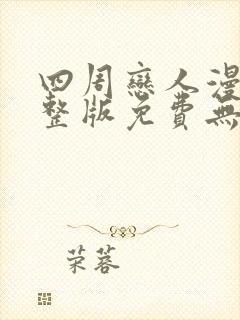 四周戀人漫
整版免費無
荣蓉